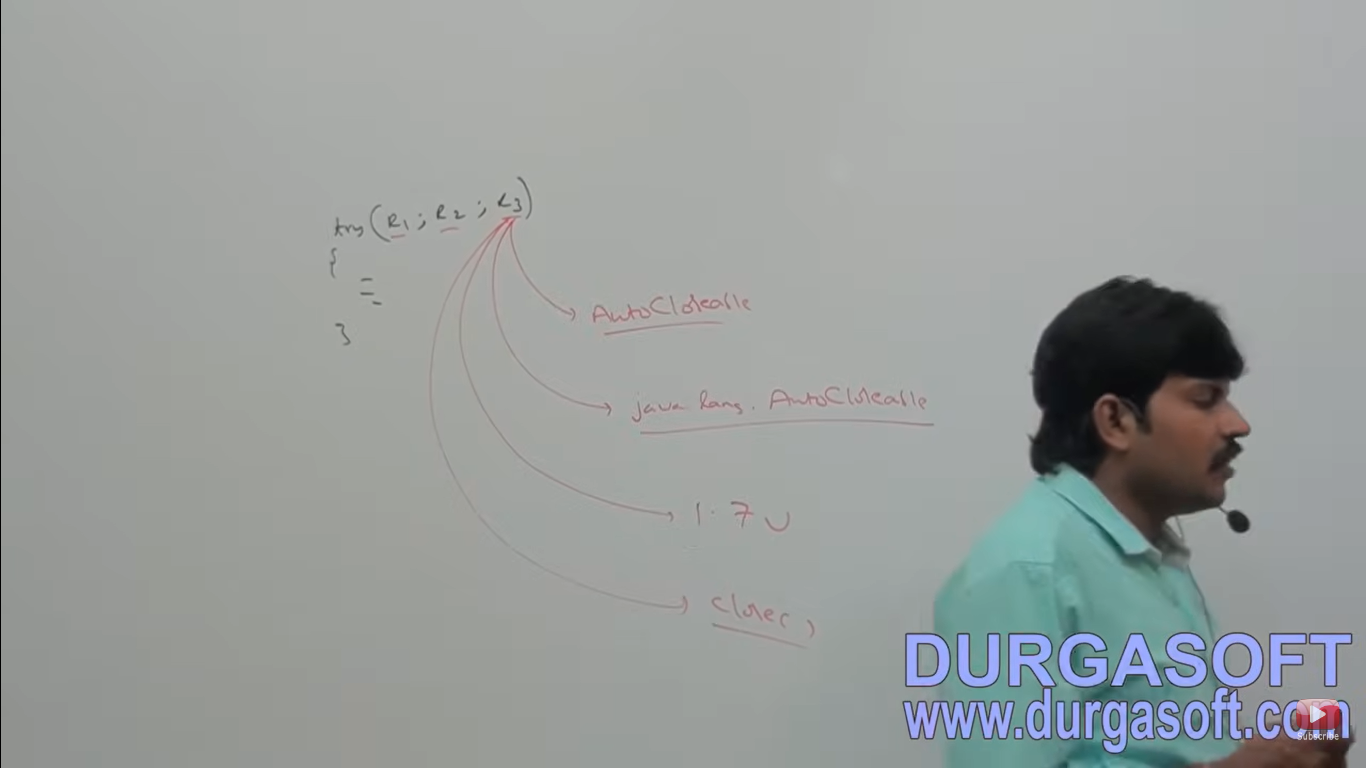 try(R1; R2; R3)
{
}
AutoCloseable
java.lang.AutoCloseable
1.7 v
close()
DURGASOFT
www.durgasoft.com
Subscribe